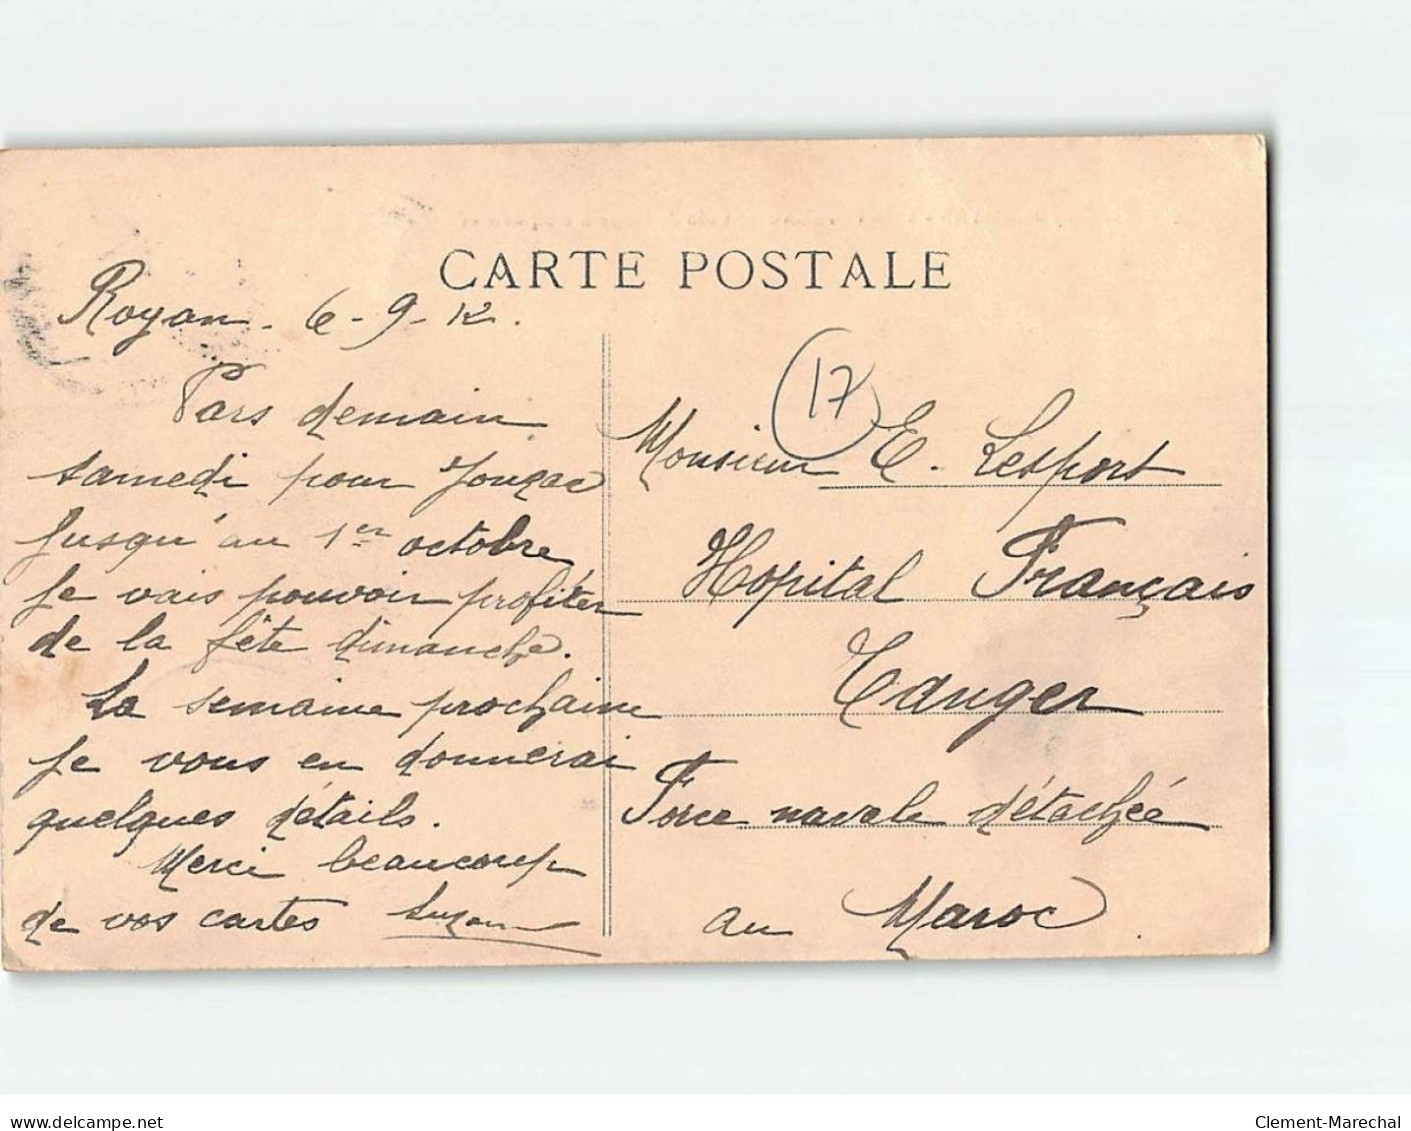 CARTE POSTALE
Royan - 6-9-12.
Pars demain
samedi pour Jonzac
Jusqu'au 1er octobre
Je vais pouvoir profiter
de la fête dimanche.
La semaine prochaine
Je vous en donnerai
quelques détails.
Merci beaucoup
de vos cartes Suzon
17
Monsieur E. Lesport
Hopital Français
Tanger
Force navale détachée
au Maroc
www.delcampe.net
Clement-Marechal